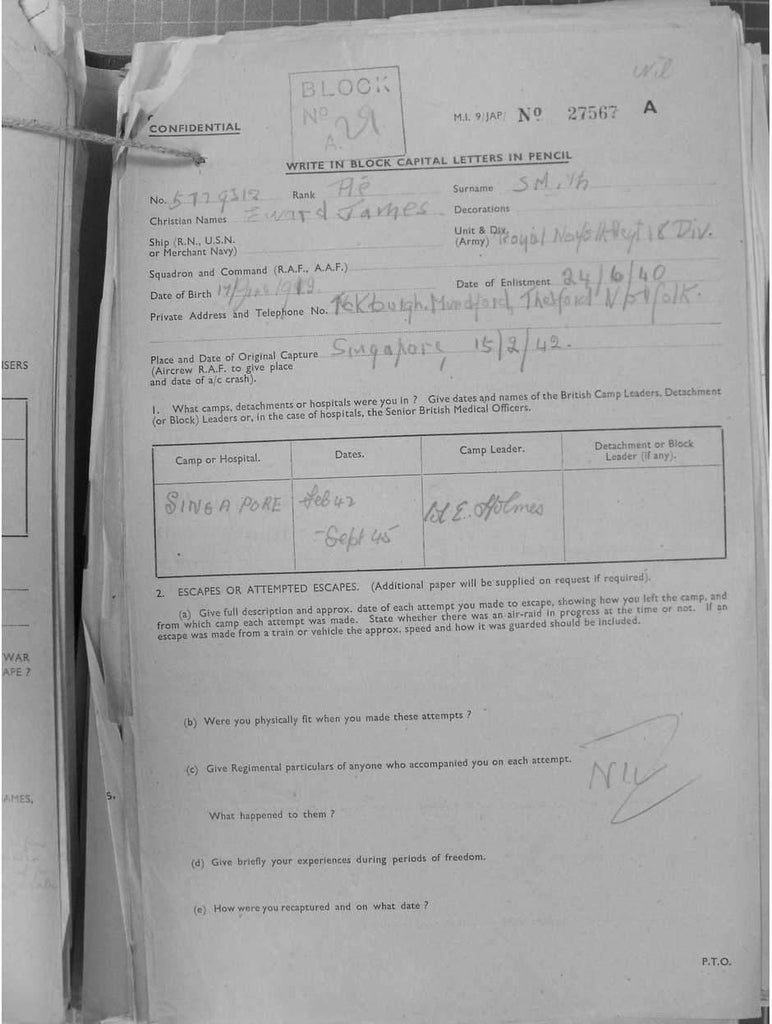 Nil
BLOCK
No
A.
CONFIDENTIAL
M.I. 9/JAP/ No 27567 A
WRITE IN BLOCK CAPITAL LETTERS IN PENCIL
No. 5779312 Rank Pte Surname SMith
Christian Names Eward James Decorations
Ship (R.N., U.S.N.
or Merchant Navy)
Unit & Div.
(Army) Royal Norfolk Regt 18 Div.
Squadron and Command (R.A.F., A.A.F.)
Date of Birth Date of Enlistment 24/6/40
Private Address and Telephone No. Ickburgh, Mundford, Thetford Norfolk.
Place and Date of Original Capture Singapore, 15/2/42.
(Aircrew R.A.F. to give place
and date of a/c crash).
1. What camps, detachments or hospitals were you in ? Give dates and names of the British Camp Leaders, Detachment
(or Block) Leaders or, in the case of hospitals, the Senior British Medical Officers.
Camp or Hospital. Dates. Camp Leader. Detachment or Block
Leader (if any).
SINGAPORE Feb 42 E. Holmes
- Sept 45
2. ESCAPES OR ATTEMPTED ESCAPES. (Additional paper will be supplied on request if required).
(a) Give full description and approx. date of each attempt you made to escape, showing how you left the camp, and
from which camp each attempt was made. State whether there was an air-raid in progress at the time or not. If an
escape was made from a train or vehicle the approx. speed and how it was guarded should be included.
(b) Were you physically fit when you made these attempts ?
(c) Give Regimental particulars of anyone who accompanied you on each attempt.
Nil
What happened to them ?
(d) Give briefly your experiences during periods of freedom.
(e) How were you recaptured and on what date ?
P.T.O.
ISERS
WAR
APE ?
AMES,
S.